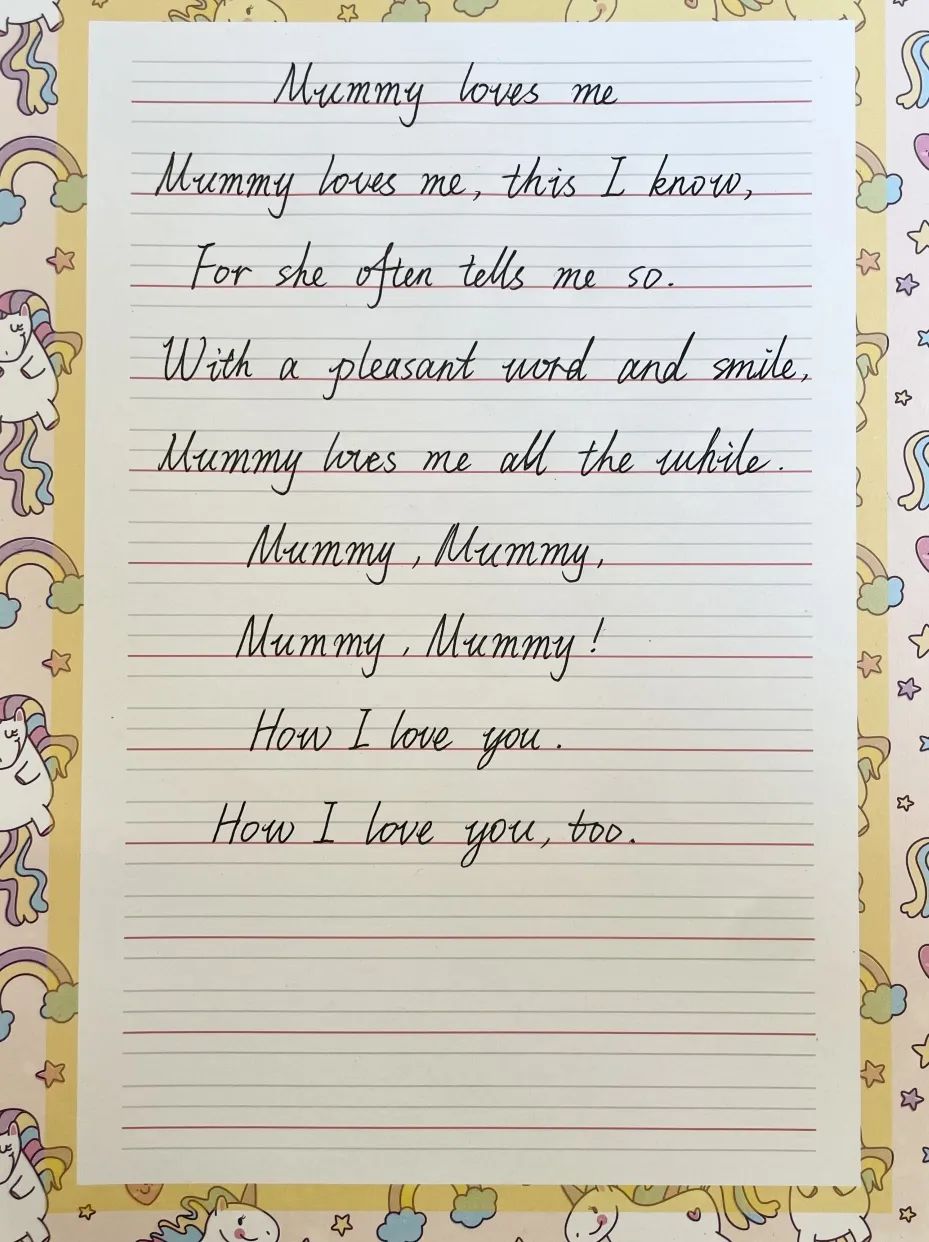 Mummy loves me
Mummy loves me, this I know,
For she often tells me so.
With a pleasant word and smile,
Mummy loves me all the while.
Mummy, Mummy,
Mummy, Mummy!
How I love you.
How I love you, too.